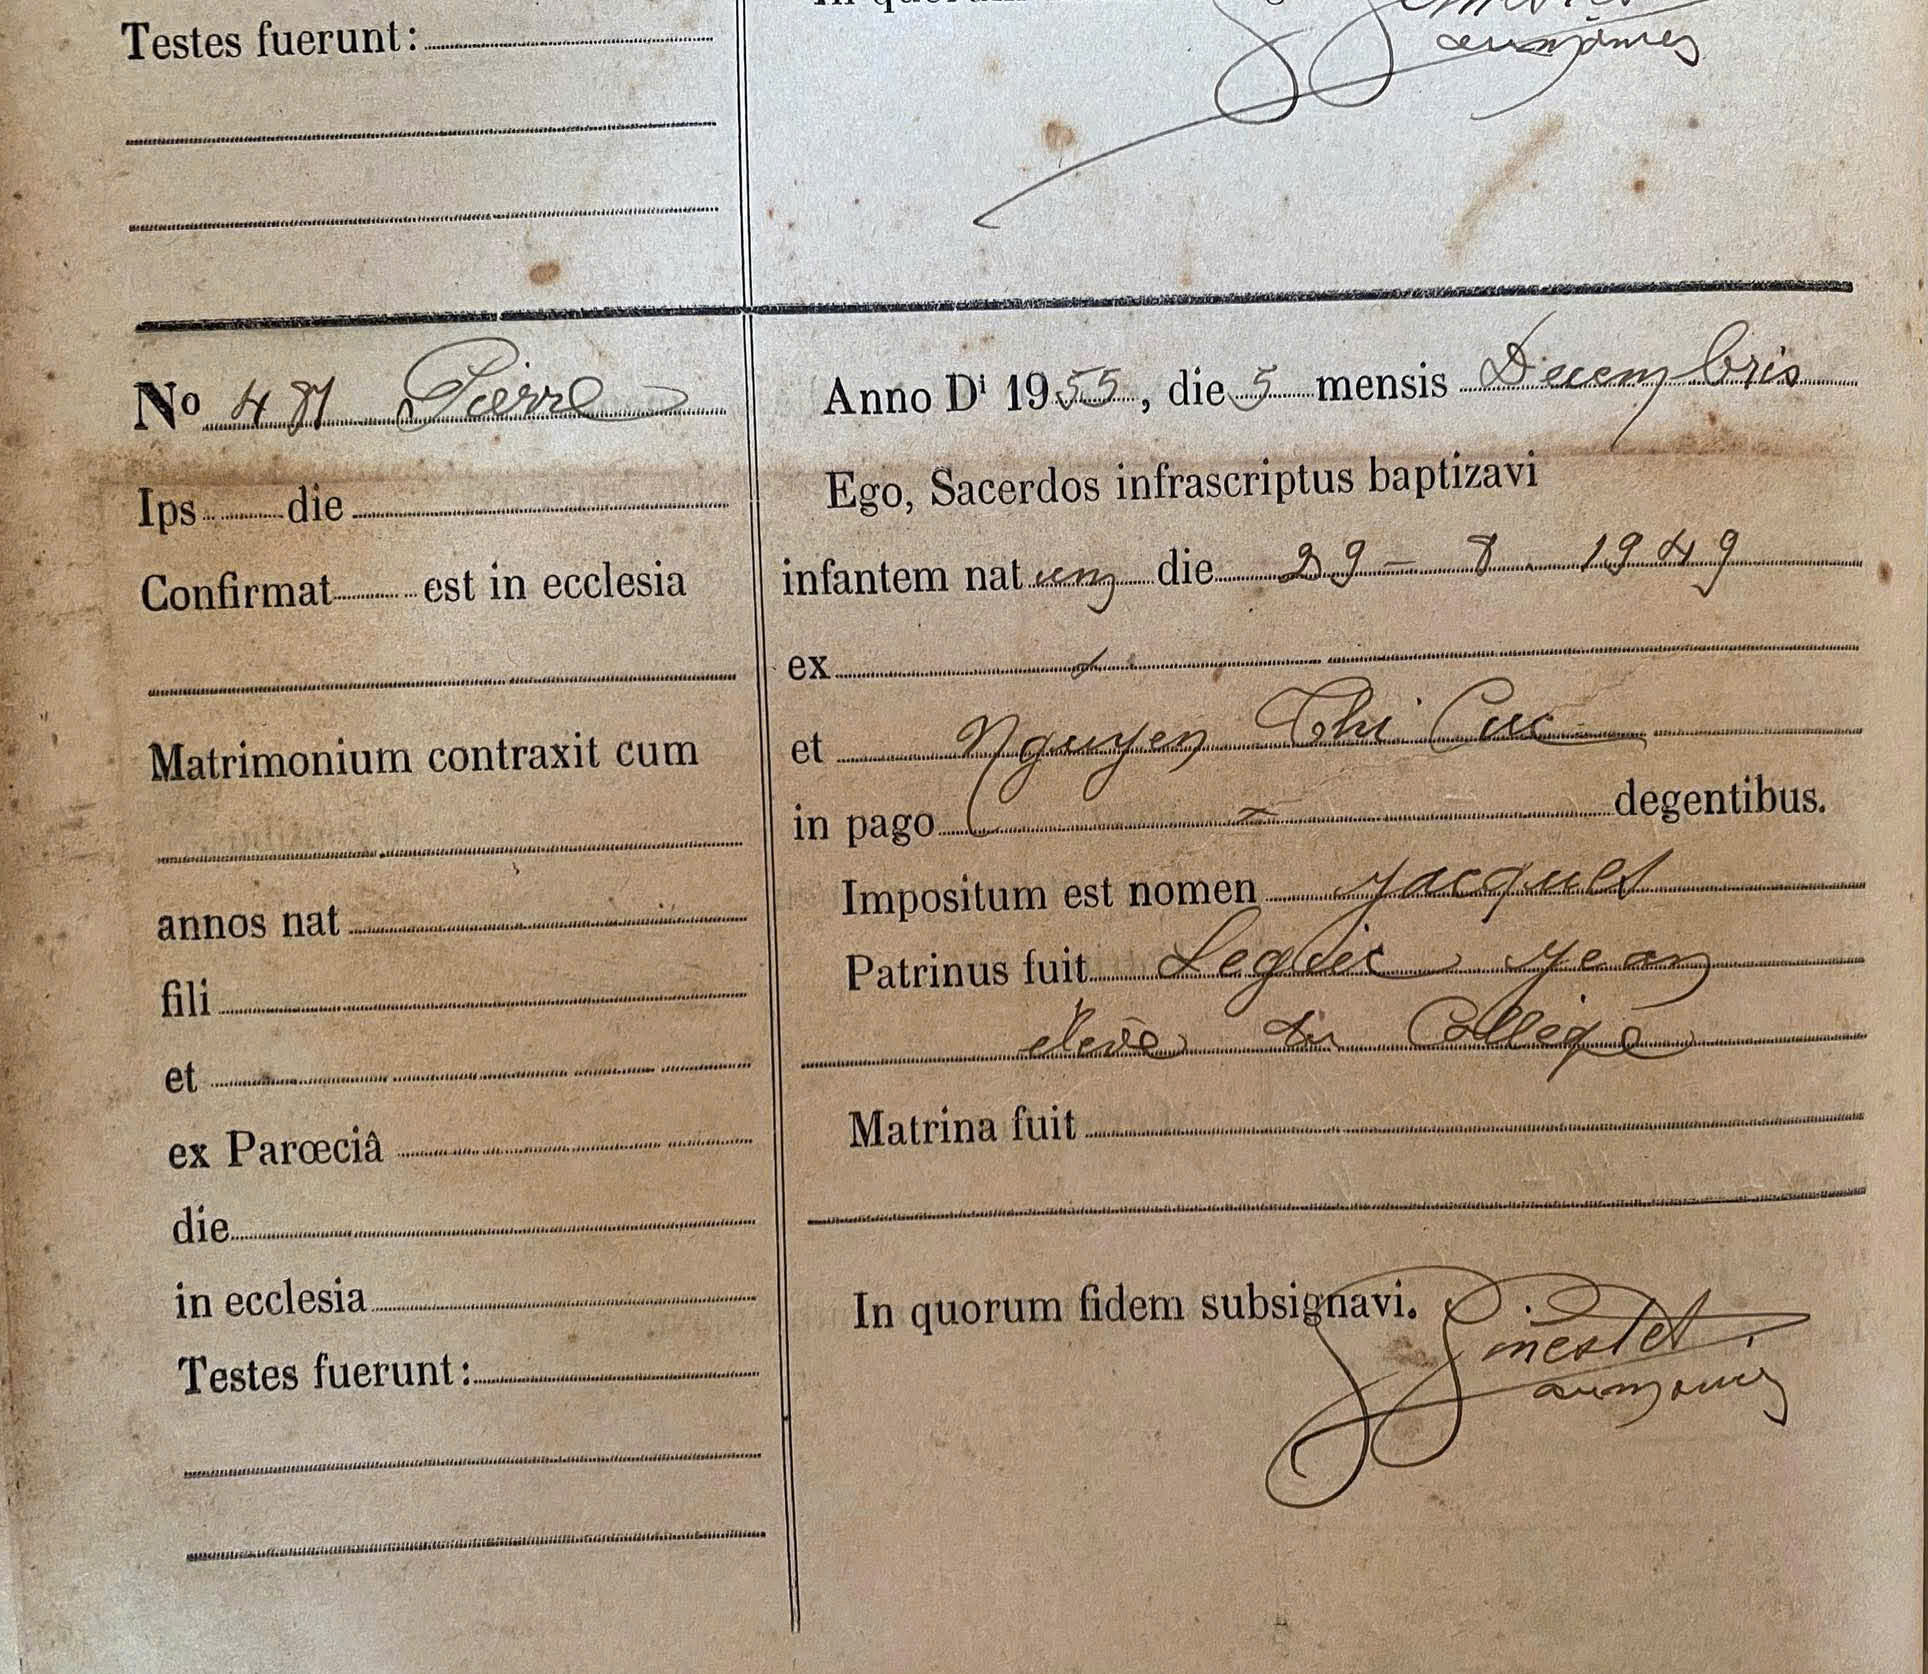 Testes fuerunt:
aumônier
No 481 Pierre
Ips die
Confirmat est in ecclesia
Matrimonium contraxit cum
annos nat
fili
et
ex Parœciâ
die
in ecclesia
Testes fuerunt:
Anno Di 1955, die 5 mensis Decembris
Ego, Sacerdos infrascriptus baptizavi
infantem natum die 29 - 8 - 1949
ex
et Nguyen Thi Cuc
in pago degentibus.
Impositum est nomen Jacques
Patrinus fuit Jean
élève du Collège
Matrina fuit
In quorum fidem subsignavi.
Ginestet
aumônier